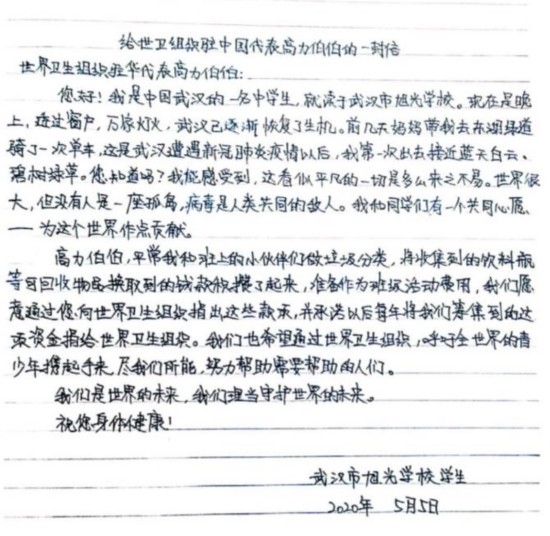 给世卫组织驻中国代表高力伯伯的一封信
世界卫生组织驻华代表高力伯伯:
您好！我是中国武汉的一名中学生，就读于武汉市旭光学校。现在是晚
上，透过窗户，万家灯火，武汉已逐渐恢复了生机。前几天妈妈带我去东湖绿道
骑了一次单车，这是武汉遭遇新冠肺炎疫情以后，我第一次出去接近蓝天白云、
碧树绿草。您知道吗？我能感受到，这看似平凡的一切是多么来之不易。世界很
大，但没有人是一座孤岛，病毒是人类共同的敌人。我和同学们有一个共同心愿
——为这个世界作点贡献。
高力伯伯，平常我和班上的小伙伴们做垃圾分类，将收集到的饮料瓶
等可回收物品换取到的钱款积攒了起来，准备作为班级活动费用，我们愿
意通过您向世界卫生组织捐出这些款项，并承诺以后每年将我们筹集到的这
项资金捐给世界卫生组织。我们也希望通过世界卫生组织，呼吁全世界的青
少年携起手来，尽我们所能，努力帮助需要帮助的人们。
我们是世界的未来，我们理当守护世界的未来。
祝您身体健康！
武汉市旭光学校学生
2020年 5月5日